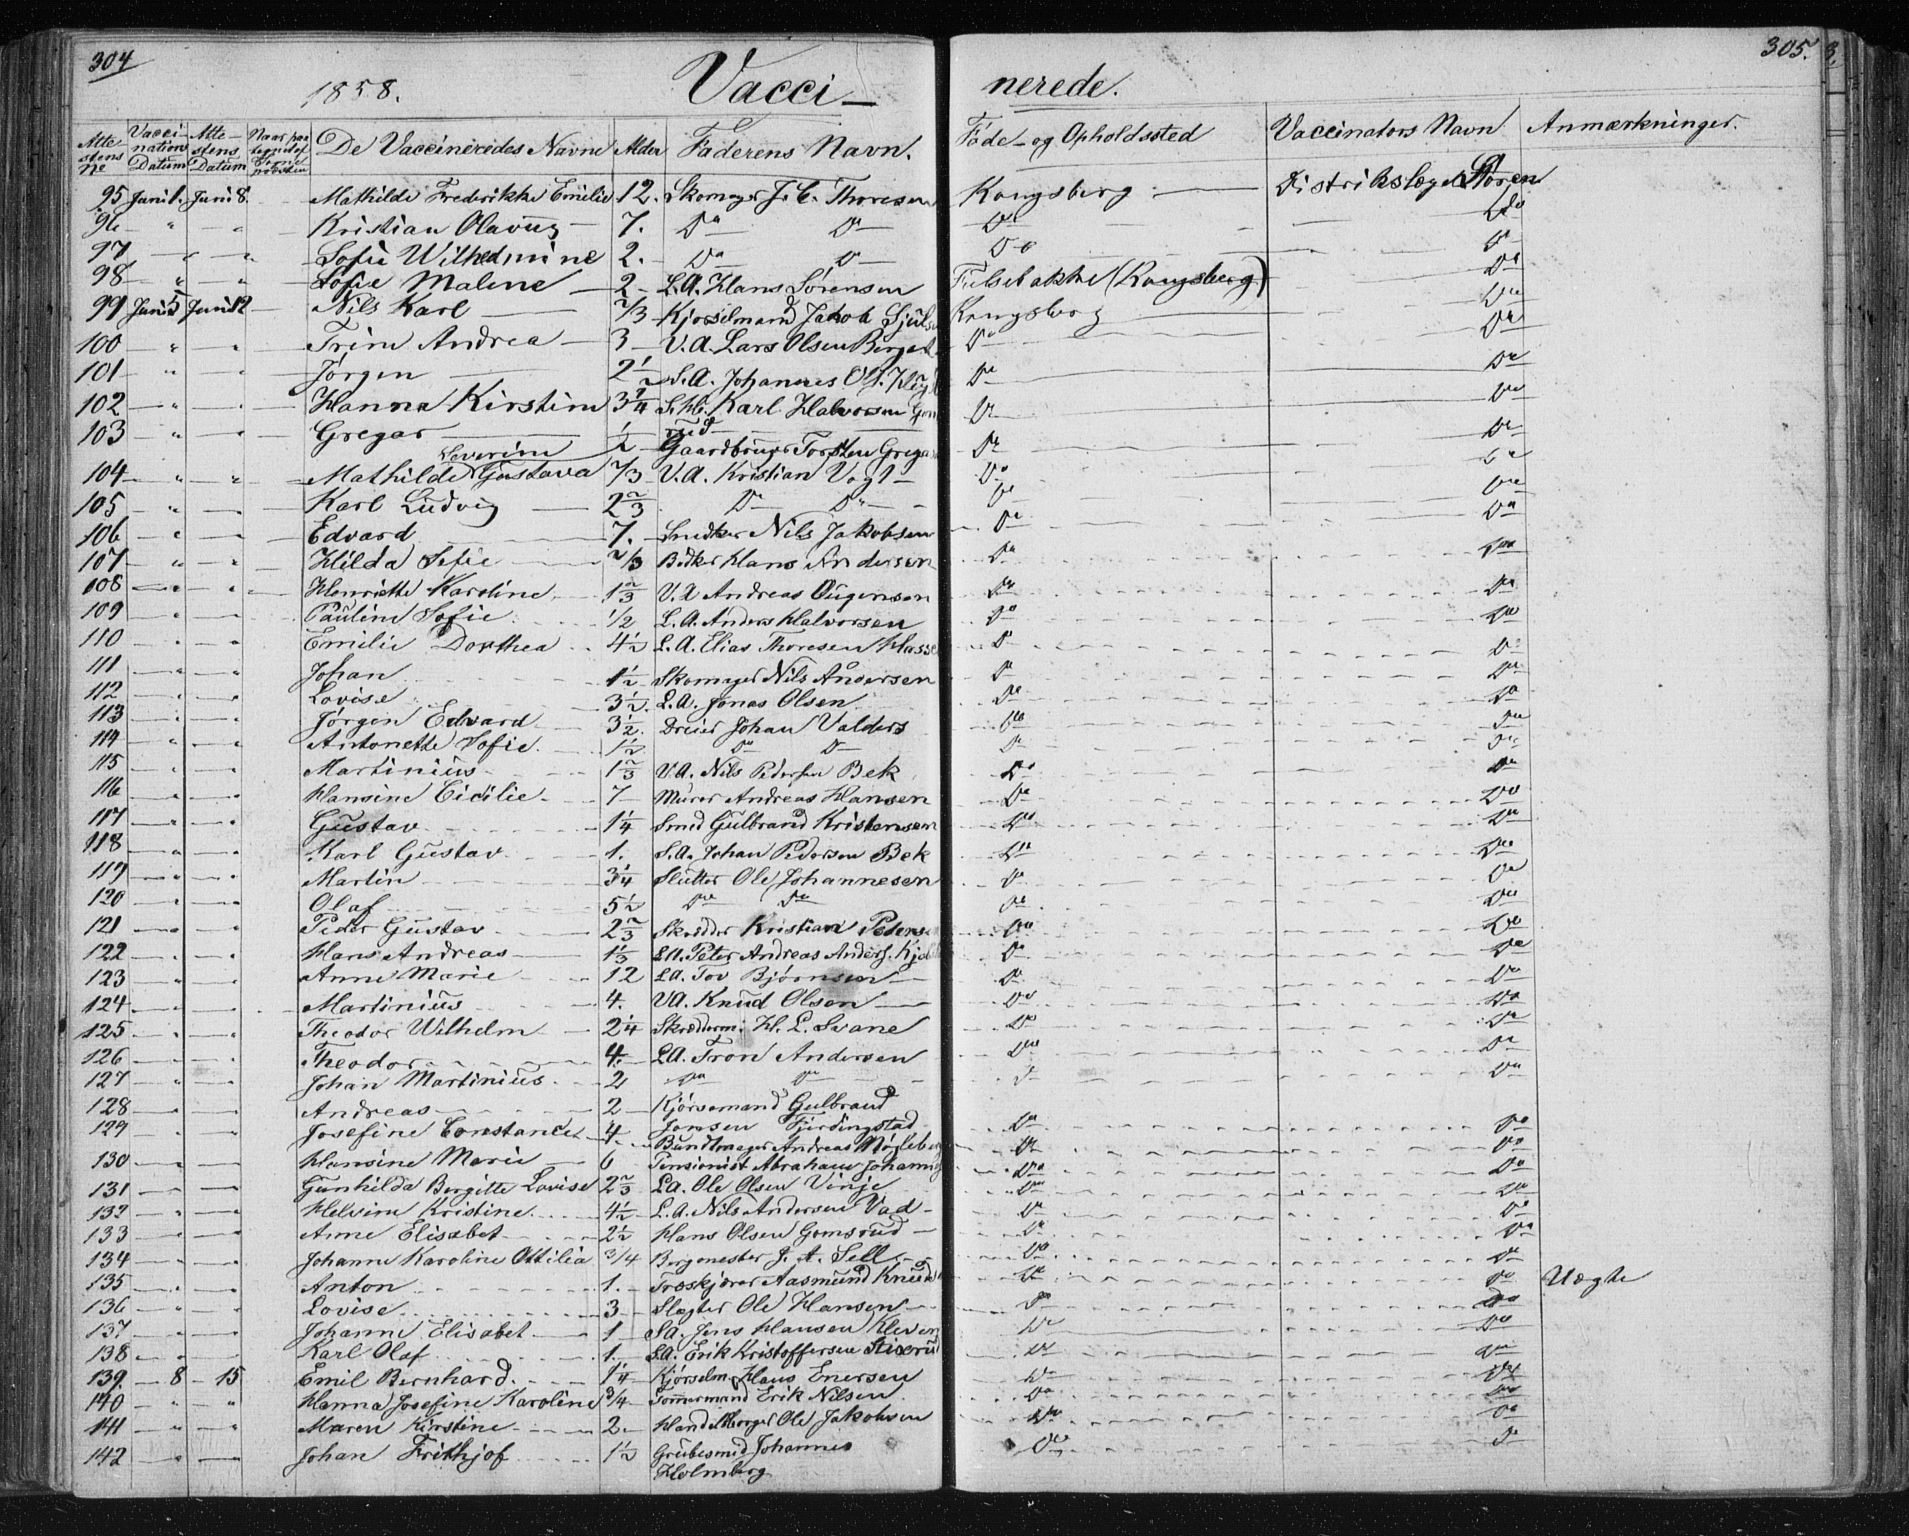 304
1858.
Vacci-
nerede.
305.
Atte-stens No
Vacci-nations Datum
Atte-stens Datum
De Vaccineredes Navne
Alder
Faderens Navn.
Føde- og Opholdssted
Vaccinators Navn
Anmærkninger.
95 Juni 1. Juni 8. Mathilde Frederikke Emilie 12. Skomager J. C. Thoresen Kongsberg Distriktslæge
96 " " Kristian Olavus 7. Do Do Do Do
97 " " Sofie Wilhelmine 2. Do Do Do Do
98 " " Sofie Malene 2 L.A. Hans Sørensen (Kongsberg) Do
99 Juni 5 Juni 12 Nils Karl 2/3 Kjørselmand Jakob Kongsberg Do
100 " " Trine Andrea 3 V.A. Lars Olsen Do Do
101 " " Jørgen 2 1/2 S.A. Johannes Ols. Do Do
102 " " Hanna Kirstine 3 3/4 Karl Halvorsen Gom Do Do
rud
103 " " Gregar 1/2 Gaardbruger Torsten Grega Do Do
Severine
104 " " Mathilde Gustava V.A. Kristian Vogt Do Do
105 " " Karl Ludvig 2 2/3 Do Do Do Do
106 " " Edvard 7. Snedker Nils Jakobsen Do Do
107 " " Hilda Sofie 2/3 Bødker Hans Andersen Do Do
108 " " Henriette Karoline 1 2/3 V.A. Andreas Do Do
109 " " Pauline Sofie 1/2 L.A. Anders Halvorsen Do Do
110 " " Emilie Dorthea 4 1/2 L.A. Elias Thoresen Hasse Do Do
111 " " Johan 1 1/2 Skomager Nils Andersen Do Do
112 " " Lovise 3 1/2. L.A. Jonas Olsen Do Do
113 " " Jørgen Edvard 3 1/2. Dreier Johan Valders Do Do
114 " " Antonette Sofie. 1 1/2 Do Do Do Do
115 " " Martinius 1 2/3 V.A. Nils Pedersen Bek Do Do
116 " " Hansine Cicilie 7 Murer Andreas Hansen Do Do
117 " " Gustav 1 1/4 Smed Gulbrand Kristensen Do Do
118 " " Karl Gustav 1. S.A. Johan Pedersen Bek Do Do
119 " " Martin 3 1/4 Slutter Ole Johannesen Do Do
120 " " Olaf 5 1/2 Do Do Do Do
121 " " Peder Gustav 2 2/3 Skrædder Kristian Peders Do Do
122 " " Hans Andreas 1 1/3 L.A. Peter Andreas Anders. Do Do
123 " " Anne Marie 12 L.A. Tov Bjørnsen Do Do
124 " " Martinius 4. V.A. Knud Olsen Do Do
125 " " Theodor Wilhelm 2 1/4 Skrædderm. H. L. Svane Do Do
126 " " Theodor 4. L.A. Tron Andersen Do Do
127 " " Johan Martinius 2 Do Do Do Do
128 " " Andreas 2 Kjørsemand Gulbrand
Jonsen Fjerdingstad Do Do
129 " " Josefine Constance 4. Bundtmager Andreas Do Do
130 " " Hansine Marie 6 Pensionist Abraham Johann Do Do
131 " " Gunhilda Bergitte Lovise 2 2/3 L.A. Ole Olsen Vinje Do Do
132 " " Helvine Kristine 4 1/2 L.A. Nils Andersen Vad Do Do
133 " " Anne Elisabet 2 1/2 Hans Olsen Gomsrud Do Do
134 " " Johanne Karoline Ottilia 3/4 Bergmester J. A. Sell Do Do
135 " " Anton 1. Træskjærer Aasmund Knuds Do Do Uægte
136 " " Lovise 3 Slagter Ole Hansen Do Do
137 " " Johanne Elisabet 1 S.A. Jens Hansen Kleven Do Do
138 " " Karl Olaf 1. S.A. Erik Kristoffersen Do Do
139. 8 15 Emil Bernhard. 1 1/4 Kjørselm. Hans Enersen Do Do
140 " " Hanna Josefine Karoline 3/4 Tømmermand Erik Nilsen Do Do
141 " " Maren Kirstine 2. Handelsborger Ole Jakobsen Do Do
142 " " Johan Frithjof 1 1/2 Grubesmed Johannes Do Do
Holmberg